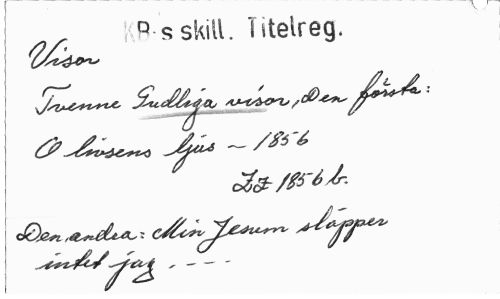 KB·s skill. Titelreg.
Visor
Tvenne Gudliga visor, Den första:
O livsens ljus ~ 1856
ZZ 1856 b.
Den andra: Min Jesum släpper
intet jag . - - -